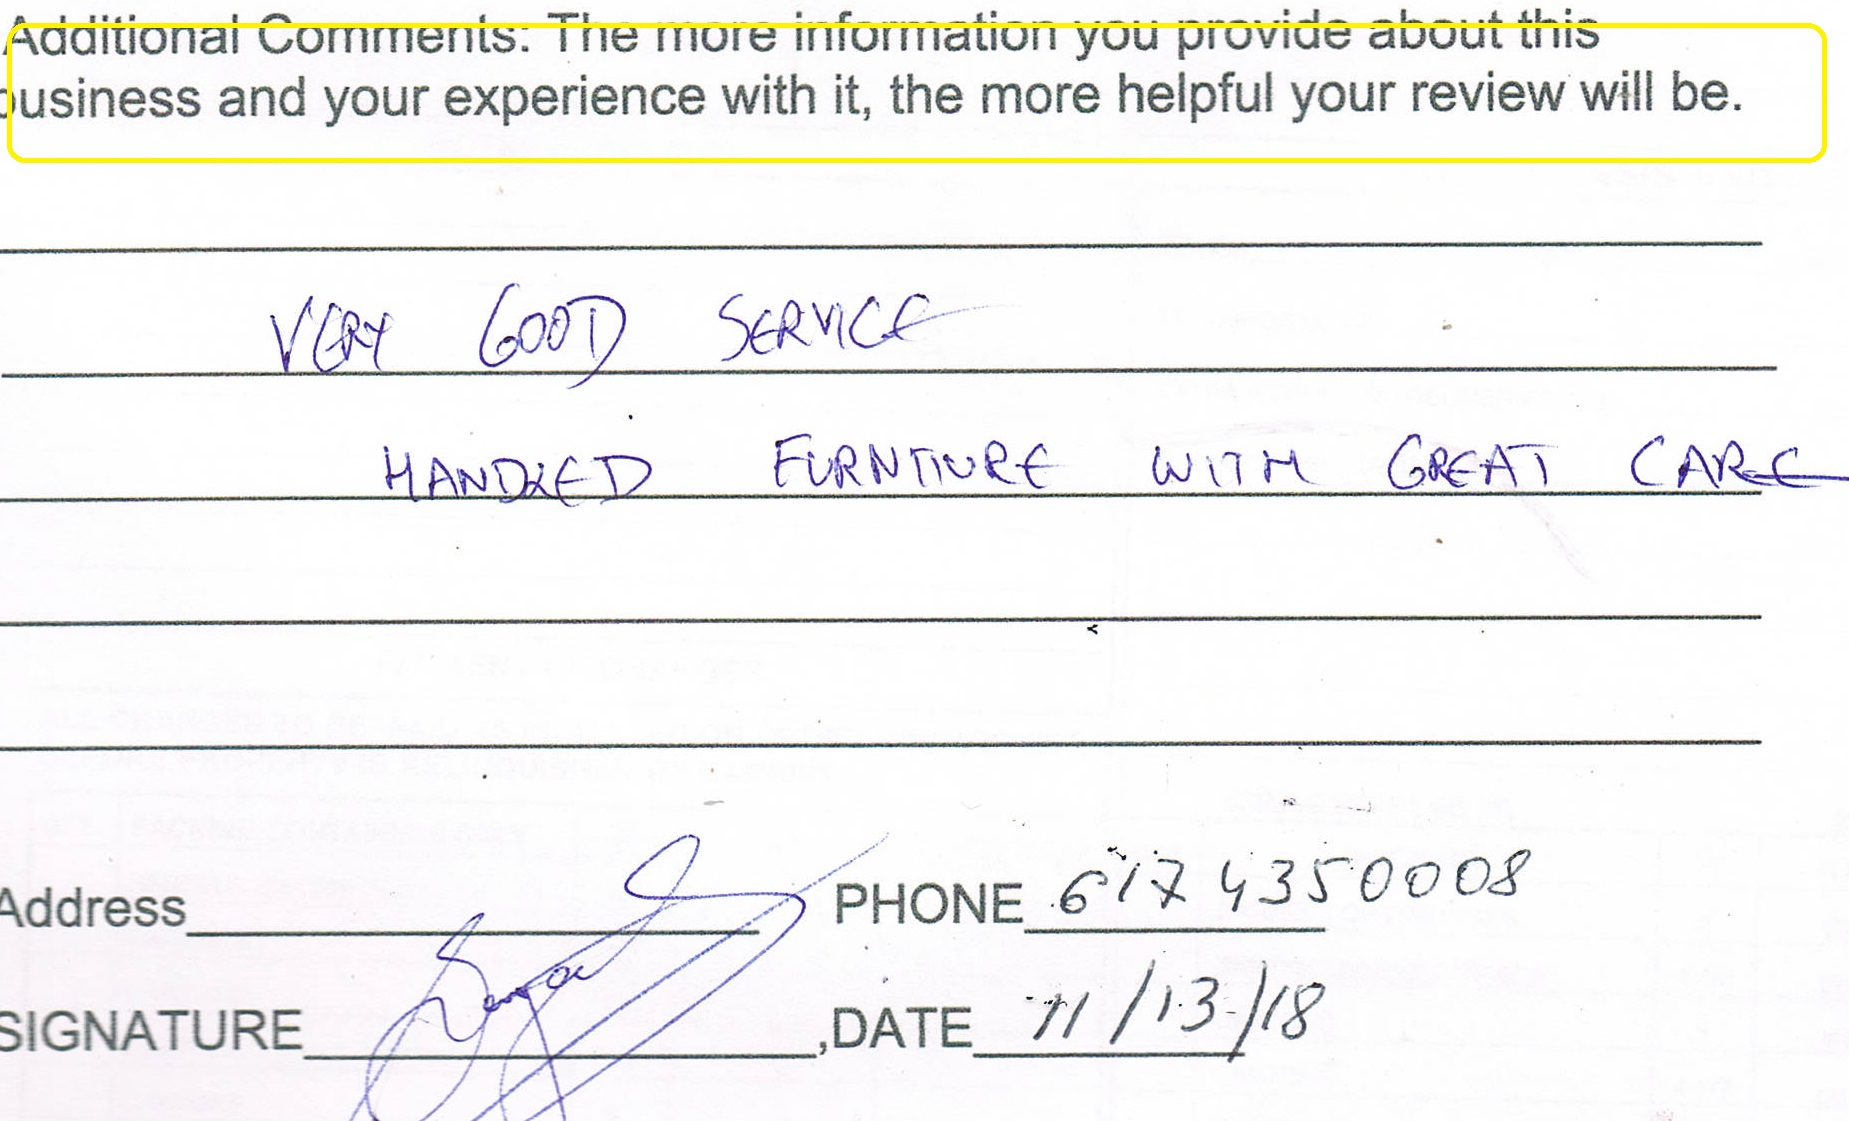 Additional Comments: The more information you provide about this
business and your experience with it, the more helpful your review will be.
VERY GOOD SERVICE
HANDLED FURNTIURE WITH GREAT CARE
Address PHONE 6174350008
SIGNATURE ,DATE 11/13/18